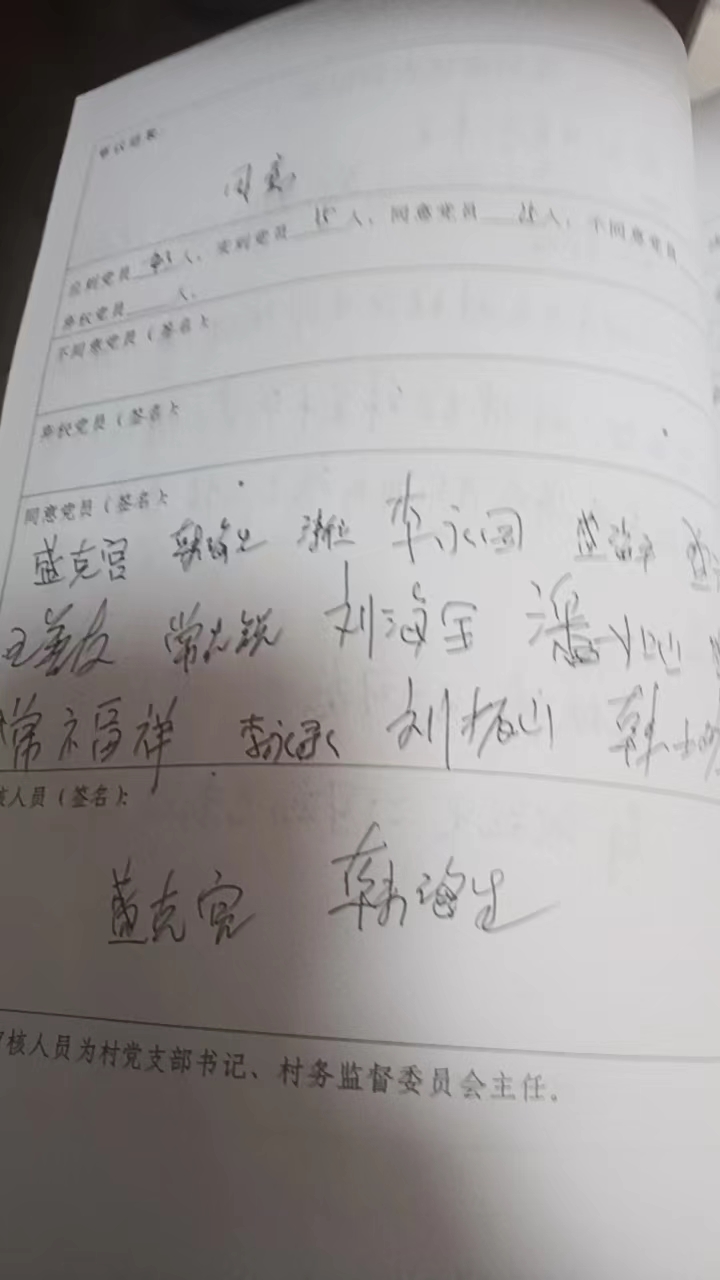 审议结果:
同意
应到党员 人，实到党员 15 人，同意党员 15 人，不同意党员
弃权党员 人。
不同意党员（签名）:
弃权党员（签名）:
同意党员（签名）:
盛克宫 韩海生 李永国
常志锐 刘海宝 潘
常福祥 李永录 刘振山 韩
核人员（签名）:
盛克宫 韩海生
核人员为村党支部书记、村务监督委员会主任。